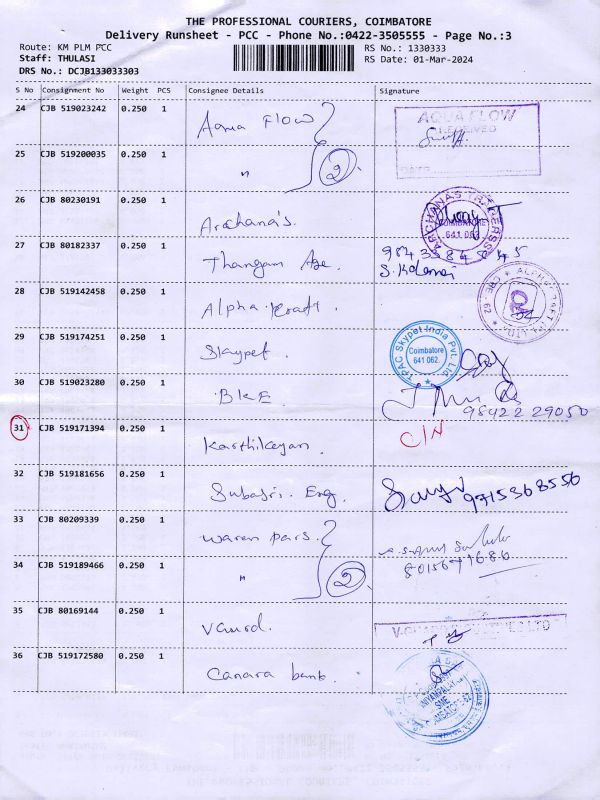 THE PROFESSIONAL COURIERS, COIMBATORE
Delivery Runsheet - PCC - Phone No.:0422-3505555 - Page No.:3
Route: KM PLM PCC
RS No.: 1330333
Staff: THULASI
RS Date: 01-Mar-2024
DRS No.: DCJB133033303
S No Consignment No Weight PCS Consignee Details Signature
24 CJB 519023242 0.250 1 Aqua Flow
AQUA FLOW
RECEIVED
DATE
25 CJB 519200035 0.250 1 " 2
26 CJB 80230191 0.250 1 Archana's.
COIMBATORE
641 062
27 CJB 80182337 0.250 1 Thangam
28 CJB 519142458 0.250 1 Alpha Kraft.
29 CJB 519174251 0.250 1 Skypet.
TPAC Skypet India Pvt. Ltd
Coimbatore
641 062.
30 CJB 519023280 0.250 1 BKE
98422 29050
31 CJB 519171394 0.250 1 Karthikeyan. C/N
32 CJB 519181656 0.250 1 Subasri. Eng. 9715368550
33 CJB 80209339 0.250 1
34 CJB 519189466 0.250 1 " 2
35 CJB 80169144 0.250 1
36 CJB 519172580 0.250 1 Canara bank.
SME